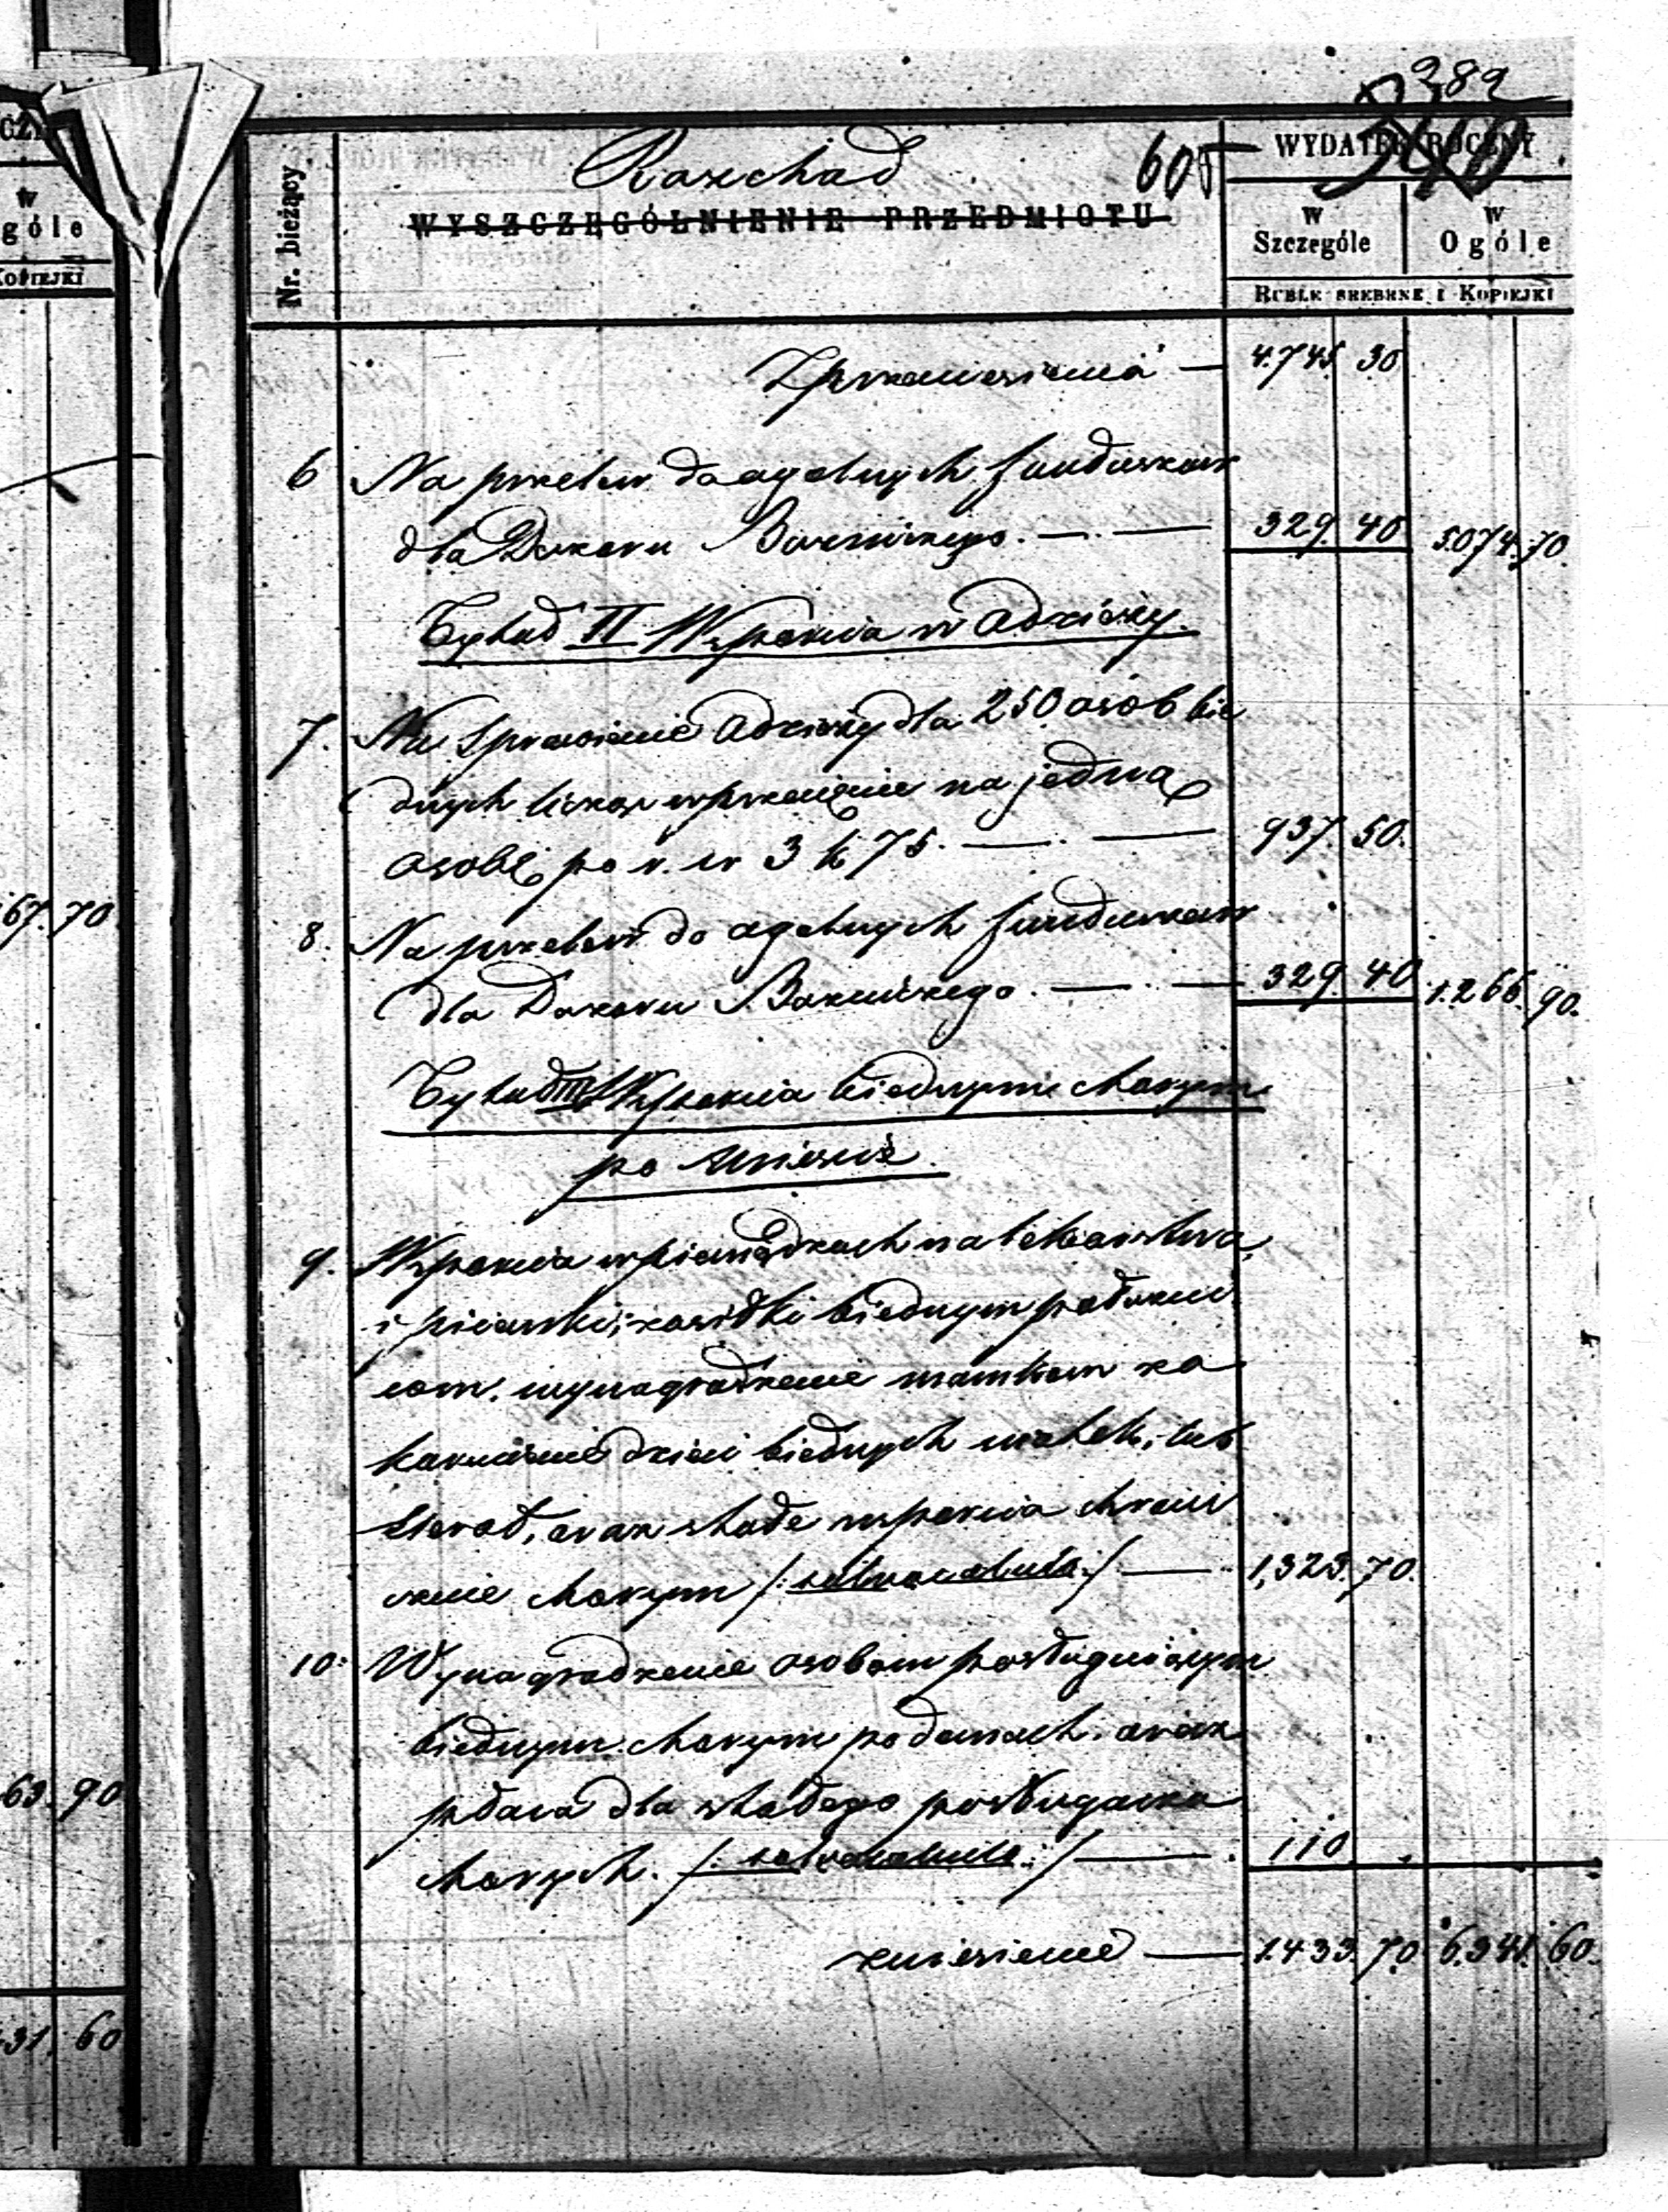 CZ
w
góle
KOPIEJKI
67. 70
63. 90
31. 60
382
Nr. bieżący
Rozchód
605
WYSZCZEGÓLNIENIE PRZEDMIOTU
WYDATEK ROCZNY
w Szczególe
w Ogóle
RUBLE SREBRNE I KOPIEJKI
Z przeniesienia — 4.745 30
6 Na przelew do ogólnych funduszów
dla Dozoru Bożniczego. — 329. 40 5.074. 70.
Tytuł II Wsparcia w Odzieży.
7. Na sprawienie Odzieży dla 250 osób bie
dnych licząc w przecięciu na jedną
osobę po r. sr 3 k 75. — 937. 50.
8. Na przelew do ogólnych funduszów
dla Dozoru Bożniczego. — 329. 40 1.266. 90.
Tytuł III Wsparcia biednym chorym
po mieście.
9. Wsparcia w pieniądzach na lekarstwa,
i pijawki, zasiłki biednym położni
com, wynagrodzenie mamkom za
karmienie dzieci biednych matek, lub
sierot, oraz stałe wsparcia chroni
cznie chorym /: salvo calculo :/ — 1,323. 70.
10. Wynagrodzenie osobom posługującym
biednym chorym po domach, oraz
płaca dla stałego posługacza
chorych. /: salvo calculo :/ — 110 .
zniesienie — 1.433. 70. 6.341. 60.